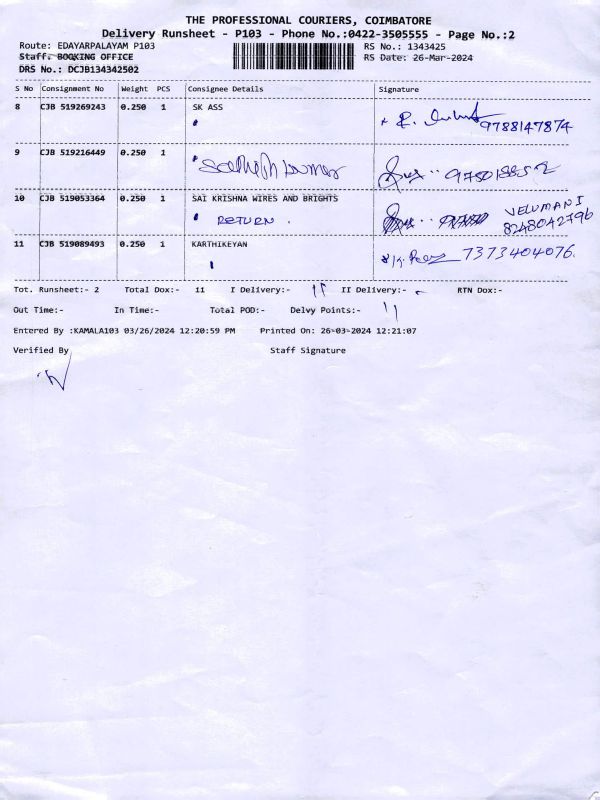 THE PROFESSIONAL COURIERS, COIMBATORE
Delivery Runsheet - P103 - Phone No.:0422-3505555 - Page No.:2
Route: EDAYARPALAYAM P103
RS No.: 1343425
Staff. BOOKING OFFICE
RS Date: 26-Mar-2024
DRS No.: DCJB134342502
S No Consignment No Weight PCS Consignee Details Signature
8 CJB 519269243 0.250 1 SK ASS
9788147874
9 CJB 519216449 0.250 1
Sathish kumar
10 CJB 519053364 0.250 1 SAI KRISHNA WIRES AND BRIGHTS
RETURN . VELUMANI
8248042796
11 CJB 519089493 0.250 1 KARTHIKEYAN
7373404076.
Tot. Runsheet:- 2 Total Dox:- 11 I Delivery:- 11 II Delivery:- RTN Dox:-
Out Time:- In Time:- Total POD:- Delvy Points:- 11
Entered By :KAMALA103 03/26/2024 12:20:59 PM Printed On: 26-03-2024 12:21:07
Verified By Staff Signature